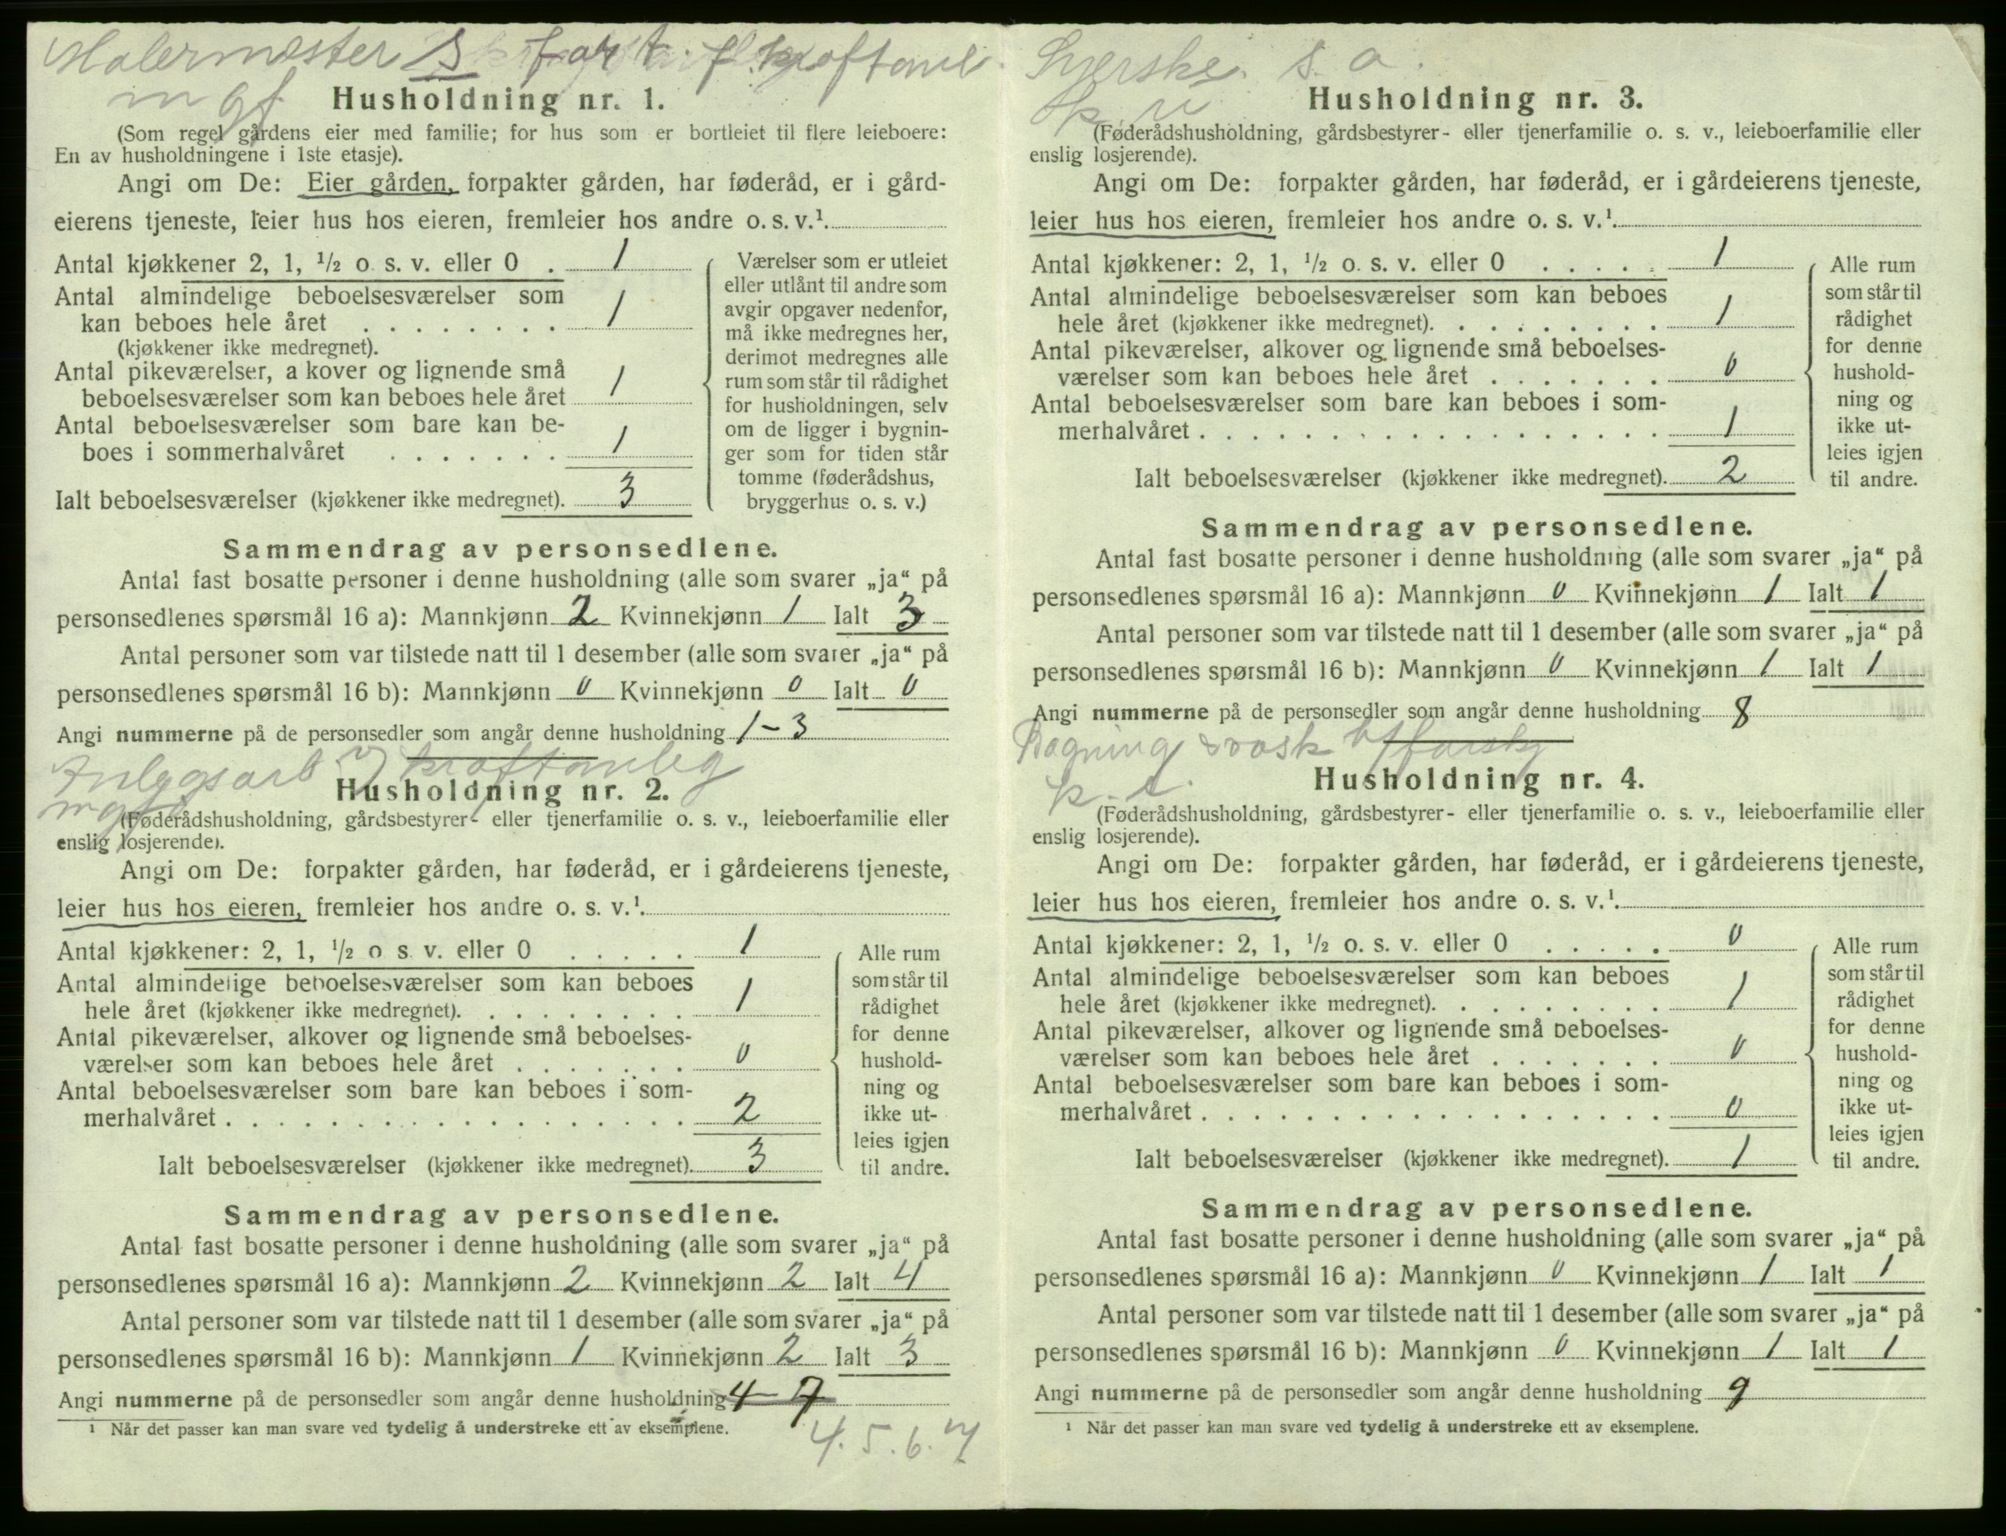 Malermester S
mgf
Husholdning nr. 1.
(Som regel gårdens eier med familie; for hus som er bortleiet til flere leieboere:
En av husholdningene i 1ste etasje).
Angi om De: Eier gården, forpakter gården, har føderåd, er i gård-
eierens tjeneste, leier hus hos eieren, fremleier hos andre o. s. v.¹
Antal kjøkkener 2, 1, ½ o s. v. eller 0 . 1
Antal almindelige beboelsesværelser som
kan beboes hele året . . . . . . . . 1
(kjøkkener ikke medregnet).
Antal pikeværelser, a kover og lignende små
beboelsesværelser som kan beboes hele året 1
Antal beboelsesværelser som bare kan be-
boes i sommerhalvåret . . . . . . . 1
Ialt beboelsesværelser (kjøkkener ikke medregnet). 3
Værelser som er utleiet
eller utlånt til andre som
avgir opgaver nedenfor,
må ikke medregnes her,
derimot medregnes alle
rum som står til rådighet
for husholdningen, selv
om de ligger i bygnin-
ger som for tiden står
tomme (føderådshus,
bryggerhus o. s. v.)
Sammendrag av personsedlene.
Antal fast bosatte personer i denne husholdning (alle som svarer „ja“ på
personsedlenes spørsmål 16 a): Mannkjønn 2 Kvinnekjønn 1 Ialt 3
Antal personer som var tilstede natt til 1 desember (alle som svarer „ja“ på
personsedlenes spørsmål 16 b): Mannkjønn 0 Kvinnekjønn 0 Ialt 0
Angi nummerne på de personsedler som angår denne husholdning 1-3
kraftanleg
Husholdning nr. 2.
(Føderådshusholdning, gårdsbestyrer- eller tjenerfamilie o. s. v., leieboerfamilie eller
enslig losjerende).
Angi om De: forpakter gården, har føderåd, er i gårdeierens tjeneste,
leier hus hos eieren, fremleier hos andre o. s. v.¹
Antal kjøkkener: 2, 1, ½ o s. v. eller 0 . . . . . 1
Antal almindelige beboelsesværelser som kan beboes
hele året (kjøkkener ikke medregnet). . . . . . . . . 1
Antal pikeværelser, alkover og lignende små beboelses-
værelser som kan beboes hele året . . . . . . . 0
Antal beboelsesværelser som bare kan beboes i som-
merhalvåret . . . . . . . . . . . . . . . . . 2
Ialt beboelsesværelser (kjøkkener ikke medregnet). 3
Alle rum
som står til
rådighet
for denne
hushold-
ning og
ikke ut-
leies igjen
til andre.
Sammendrag av personsedlene.
Antal fast bosatte personer i denne husholdning (alle som svarer „ja“ på
personsedlenes spørsmål 16 a): Mannkjønn 2 Kvinnekjønn 2 Ialt 4
Antal personer som var tilstede natt til 1 desember (alle som svarer „ja“ på
personsedlenes spørsmål 16 b): Mannkjønn 1 Kvinnekjønn 2 Ialt 3
Angi nummerne på de personsedler som angår denne husholdning 4-7
¹ Når det passer kan man svare ved tydelig å understreke ett av eksemplene.
4. 5. 6. 7
s. a.
Husholdning nr. 3.
(Føderådshusholdning, gårdsbestyrer- eller tjenerfamilie o. s. v., leieboerfamilie eller
enslig losjerende).
Angi om De: forpakter gården, har føderåd, er i gårdeierens tjeneste,
leier hus hos eieren, fremleier hos andre o. s. v.¹
Antal kjøkkener: 2, 1, ½ o. s. v. eller 0 . . . . . 1
Antal almindelige beboelsesværelser som kan beboes
hele året (kjøkkener ikke medregnet). . . . . . . . . 1
Antal pikeværelser, alkover og lignende små beboelses-
værelser som kan beboes hele året . . . . . . . 0
Antal beboelsesværelser som bare kan beboes i som-
merhalvåret . . . . . . . . . . . . . . . . . 1
Ialt beboelsesværelser (kjøkkener ikke medregnet). 2
Alle rum
som står til
rådighet
for denne
hushold-
ning og
ikke ut-
leies igjen
til andre.
Sammendrag av personsedlene.
Antal fast bosatte personer i denne husholdning (alle som svarer „ja“ på
personsedlenes spørsmål 16 a): Mannkjønn 0 Kvinnekjønn 1 Ialt 1
Antal personer som var tilstede natt til 1 desember (alle som svarer „ja“ på
personsedlenes spørsmål 16 b): Mannkjønn 0 Kvinnekjønn 1 Ialt 1
Angi nummerne på de personsedler som angår denne husholdning 8
Husholdning nr. 4.
(Føderådshusholdning, gårdsbestyrer- eller tjenerfamilie o. s. v., leieboerfamilie eller
enslig losjerende).
Angi om De: forpakter gården, har føderåd, er i gårdeierens tjeneste,
leier hus hos eieren, fremleier hos andre o. s. v.¹
Antal kjøkkener: 2, 1, ½ o. s. v. eller 0 . . . . . 0
Antal almindelige beboelsesværelser som kan beboes
hele året (kjøkkener ikke medregnet). . . . . . . . . 1
Antal pikeværelser, alkover og lignende små beboelses-
værelser som kan beboes hele året . . . . . . . 0
Antal beboelsesværelser som bare kan beboes i som-
merhalvåret . . . . . . . . . . . . . . . . . 0
Ialt beboelsesværelser (kjøkkener ikke medregnet). 1
Alle rum
som står til
rådighet
for denne
hushold-
ning og
ikke ut-
leies igjen
til andre.
Sammendrag av personsedlene.
Antal fast bosatte personer i denne husholdning (alle som svarer „ja“ på
personsedlenes spørsmål 16 a): Mannkjønn 0 Kvinnekjønn 1 Ialt 1
Antal personer som var tilstede natt til 1 desember (alle som svarer „ja“ på
personsedlenes spørsmål 16 b): Mannkjønn 0 Kvinnekjønn 1 Ialt 1
Angi nummerne på de personsedler som angår denne husholdning 9
¹ Når det passer kan man svare ved tydelig å understreke ett av eksemplene.